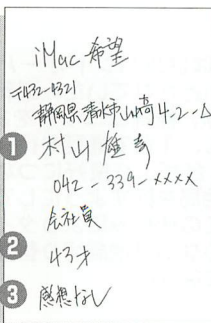 iMac 希望
〒432-4321
静岡県清水市山崎4-2-△
1 村山雄彦
042-339-××××
会社員
2 43才
3 感想なし